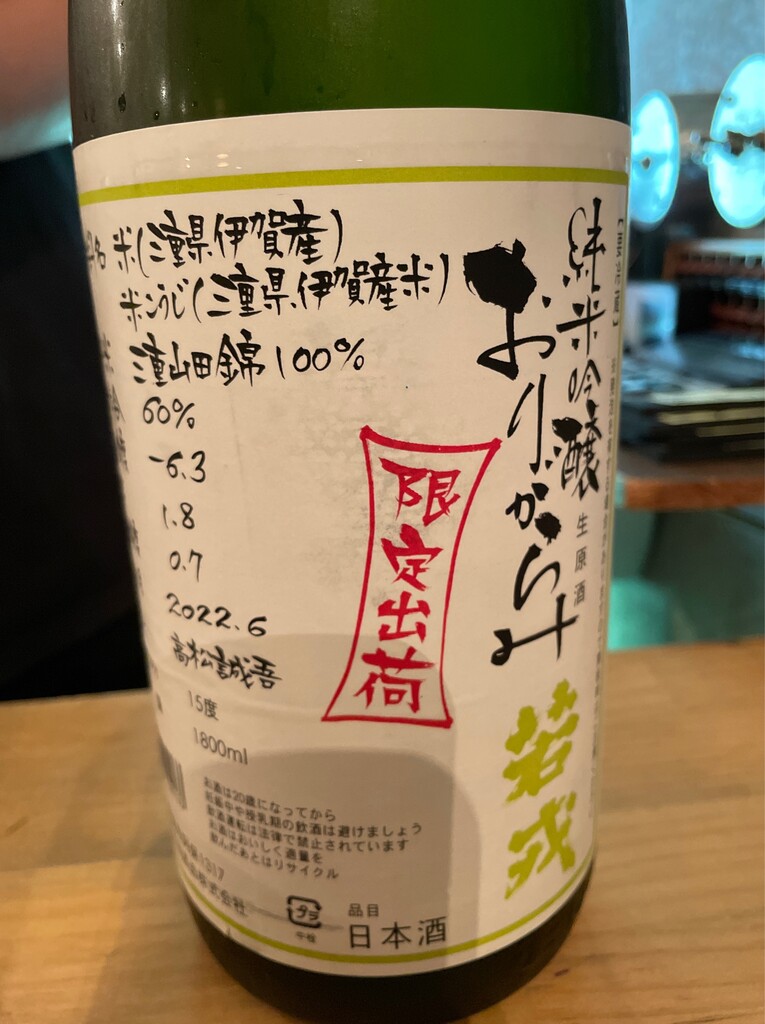 純米吟醸
おりがらみ
生原酒
若戎
限定出荷
米(三重県伊賀産)
米こうじ(三重県伊賀産米)
三重山田錦100%
60%
-6.3
1.8
0.7
2022.6
高松誠吾
15度
1800ml
お酒は20歳になってから
妊娠中や授乳期の飲酒は避けましょう
飲酒運転は法律で禁止されています
お酒はおいしく適量を
飲んだあとはリサイクル
1317
株式会社
品目
日本酒